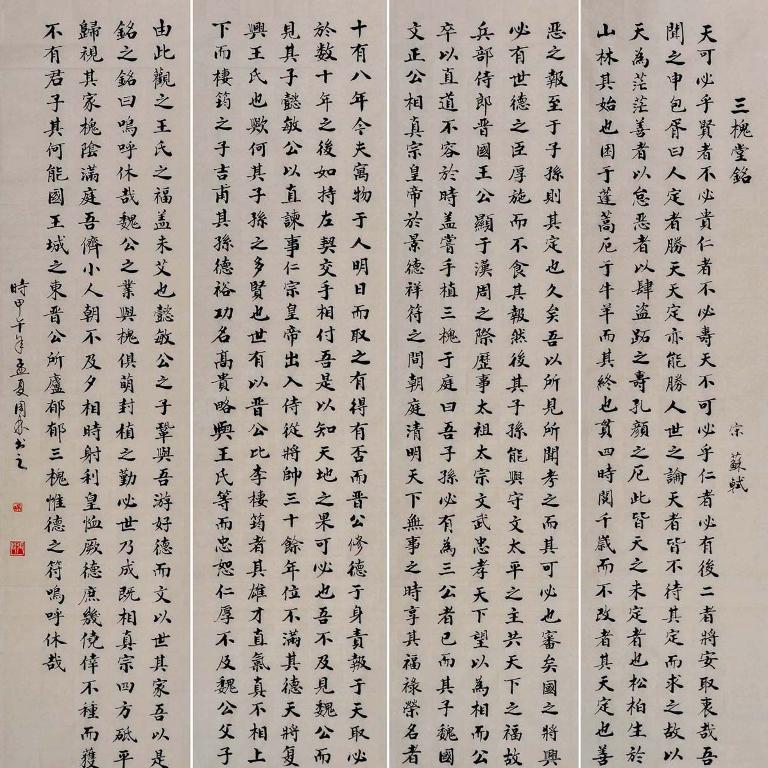 三槐堂銘
宋 蘇軾
天可必乎賢者不必貴仁者不必壽天不可必乎仁者必有後二者將安取衷哉吾
聞之申包胥曰人定者勝天天定亦能勝人世之論天者皆不待其定而求之故以
天為茫茫善者以怠惡者以肆盜跖之壽孔顏之厄此皆天之未定者也松柏生於
山林其始也困于蓬蒿厄于牛羊而其終也貫四時閱千歲而不改者其天定也善
惡之報至于子孫則其定也久矣吾以所見所聞考之而其可必也審矣國之將興
必有世德之臣厚施而不食其報然後其子孫能興守文太平之主共天下之福故
兵部侍郎晋國王公顯于漢周之際歷事太祖太宗文武忠孝天下望以為相而公
卒以直道不容於時盖嘗手植三槐于庭曰吾子孫必有為三公者已而其子魏國
文正公相真宗皇帝於景德祥符之間朝庭清明天下無事之時享其福祿榮名者
十有八年今夫寓物于人明日而取之有得有否而晋公修德于身責報于天取必
於数十年之後如持左契交手相付吾是以知天地之果可必也吾不及見魏公而
見其子懿敏公以直諫事仁宗皇帝出入侍從將帥三十餘年位不滿其德天將复
興王氏也歟何其子孫之多賢也世有以晋公比李棲筠者其雄才直氣真不相上
下而棲筠之子吉甫其孫德裕功名高貴略與王氏等而忠恕仁厚不及魏公父子
由此觀之王氏之福盖未艾也懿敏公之子鞏與吾游好德而文以世其家吾以是
銘之銘曰嗚呼休哉魏公之業與槐俱萌封植之勤必世乃成既相真宗四方砥平
歸視其家槐陰滿庭吾儕小人朝不及夕相時射利皇恤厥德庶幾僥倖不種而獲
不有君子其何能國王城之東晋公所廬郁郁三槐惟德之符嗚呼休哉
時甲午年孟夏